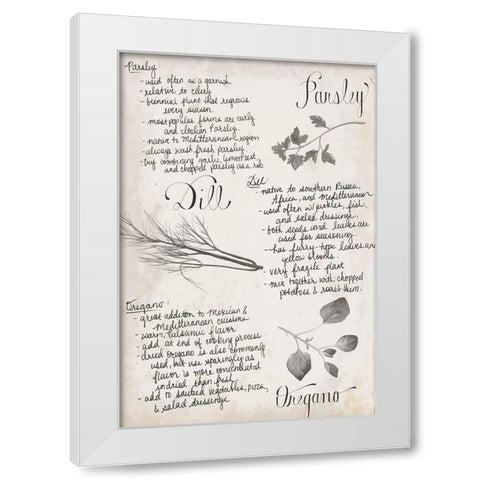 Parsley:
- used often as a garnish
- relative to celery
- biennial plant that regrows
every season.
- most popular forms are curly
and Italian Parsley.
- native to Mediterranean region
- always wash fresh parsley
- buy combining garlic, lemon zest,
and chopped parsley as a rub.
Parsley
Dill
Dill:
- native to southern Russia,
Africa, and Mediterranean
- used often w/ pickles, fish,
and salad dressings.
- both seeds and leaves are
used for seasoning
- has furry-type leaves and
yellow blooms.
- very fragile plant
- mix together with chopped
potatoes & roast them.
Oregano:
- great addition to Mexican &
Mediterranean cuisine
- warm, balsamic flavor
- add at end of cooking process
- dried oregano is also commonly
used, but use sparingly as
flavor is more concentrated
in dried than fresh
- add to sauteed vegetables, pizza,
& salad dressings
Oregano